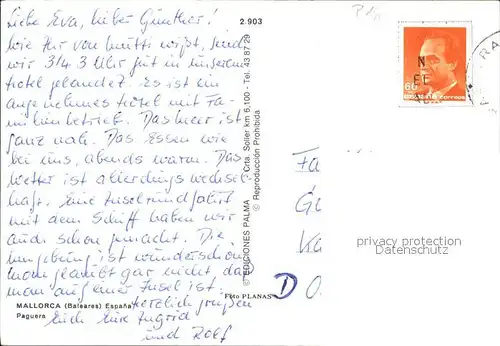 Liebe Eva, lieber Günther!
wie Ihr von Mutti wißt, sind
wir 3/4 3 Uhr gut in unserem
Hotel gelandet. Es ist ein
angenehmes Hotel mit Fa-
milienbetrieb. Das Meer ist
ganz nah. Das Essen wie
bei uns, abends warm. Das
Wetter ist allerdings wechsel-
haft. Eine Inselrundfahrt
mit dem Schiff haben wir
auch schon gemacht. Die
Umgebung ist wunderschön
man glaubt gar nicht, daß
man auf einer Insel ist.
Herzlich grüßen
Euch Eure Ingrid
und Rolf
MALLORCA (Baleares) España
Paguera
Foto PLANAS
2.903
© EDICIONES PALMA - Crta. Soller km 6,100 - Tel. 43 87 29
© Reproducción Prohibida
60
correos
Fa
Ka
D
privacy protection
Datenschutz